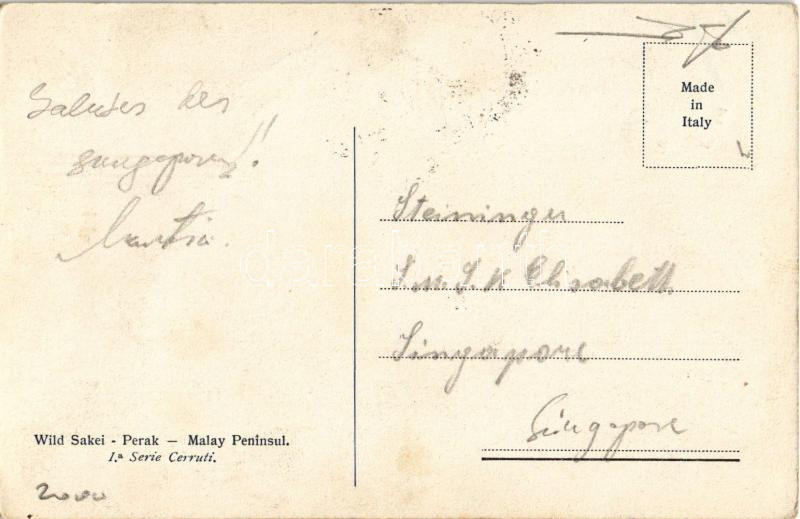 Saluses des
Singapores!
Made
in
Italy
Steininger
S.M.S. K Elisabeth
Singapore
Singapore
Wild Sakei - Perak — Malay Peninsul.
I.ª Serie Cerruti.
2000